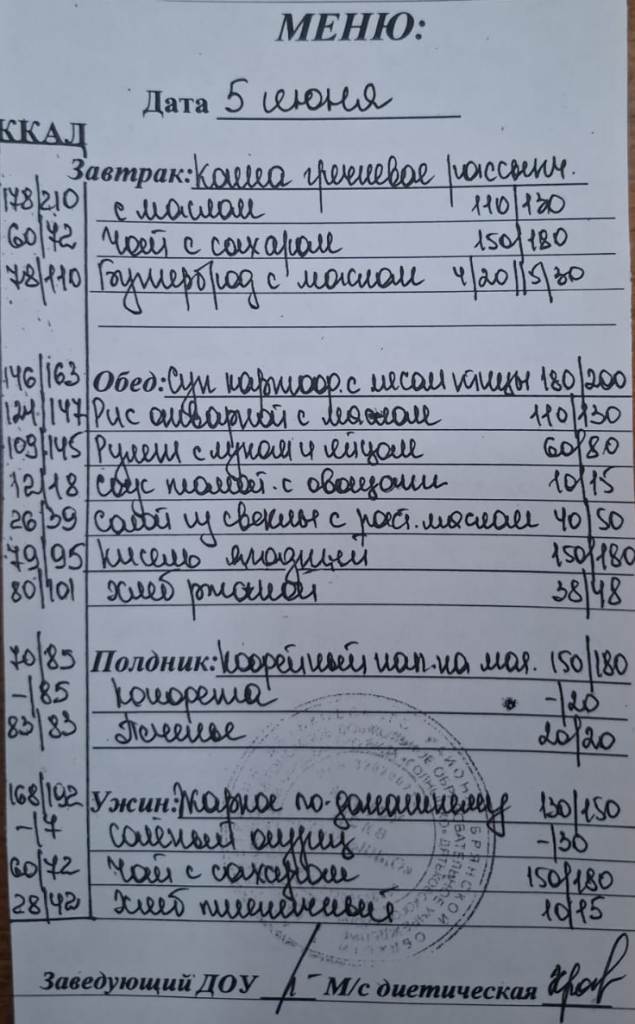 МЕНЮ:
Дата 5 июня
ККАЛ
Завтрак: Каша гречневая рассыпч.
178/210 с маслом 110/130
60/72 Чай с сахаром 150/180
78/110 Бутерброд с маслом 4/20//5/30
146/163 Обед: Суп картоф. с мясом птицы 180/200
124/147 Рис отварной с маслом 110/130
109/145 Рулет с луком и яйцом 60/80
12/18 Соус томат. с овощами 10/15
26/39 Салат из свеклы с раст. маслом 40/50
79/95 Кисель ягодный 150/180
80/101 Хлеб ржаной 38/48
70/85 Полдник: Кофейный нап. на мол. 150/180
-/85 Конфета -/20
83/83 Печенье 20/20
168/192 Ужин: Жаркое по-домашнему 130/150
-/7 солёный огурец -/30
60/72 Чай с сахаром 150/180
28/42 Хлеб пшеничный 10/15
Заведующий ДОУ М/с диетическая